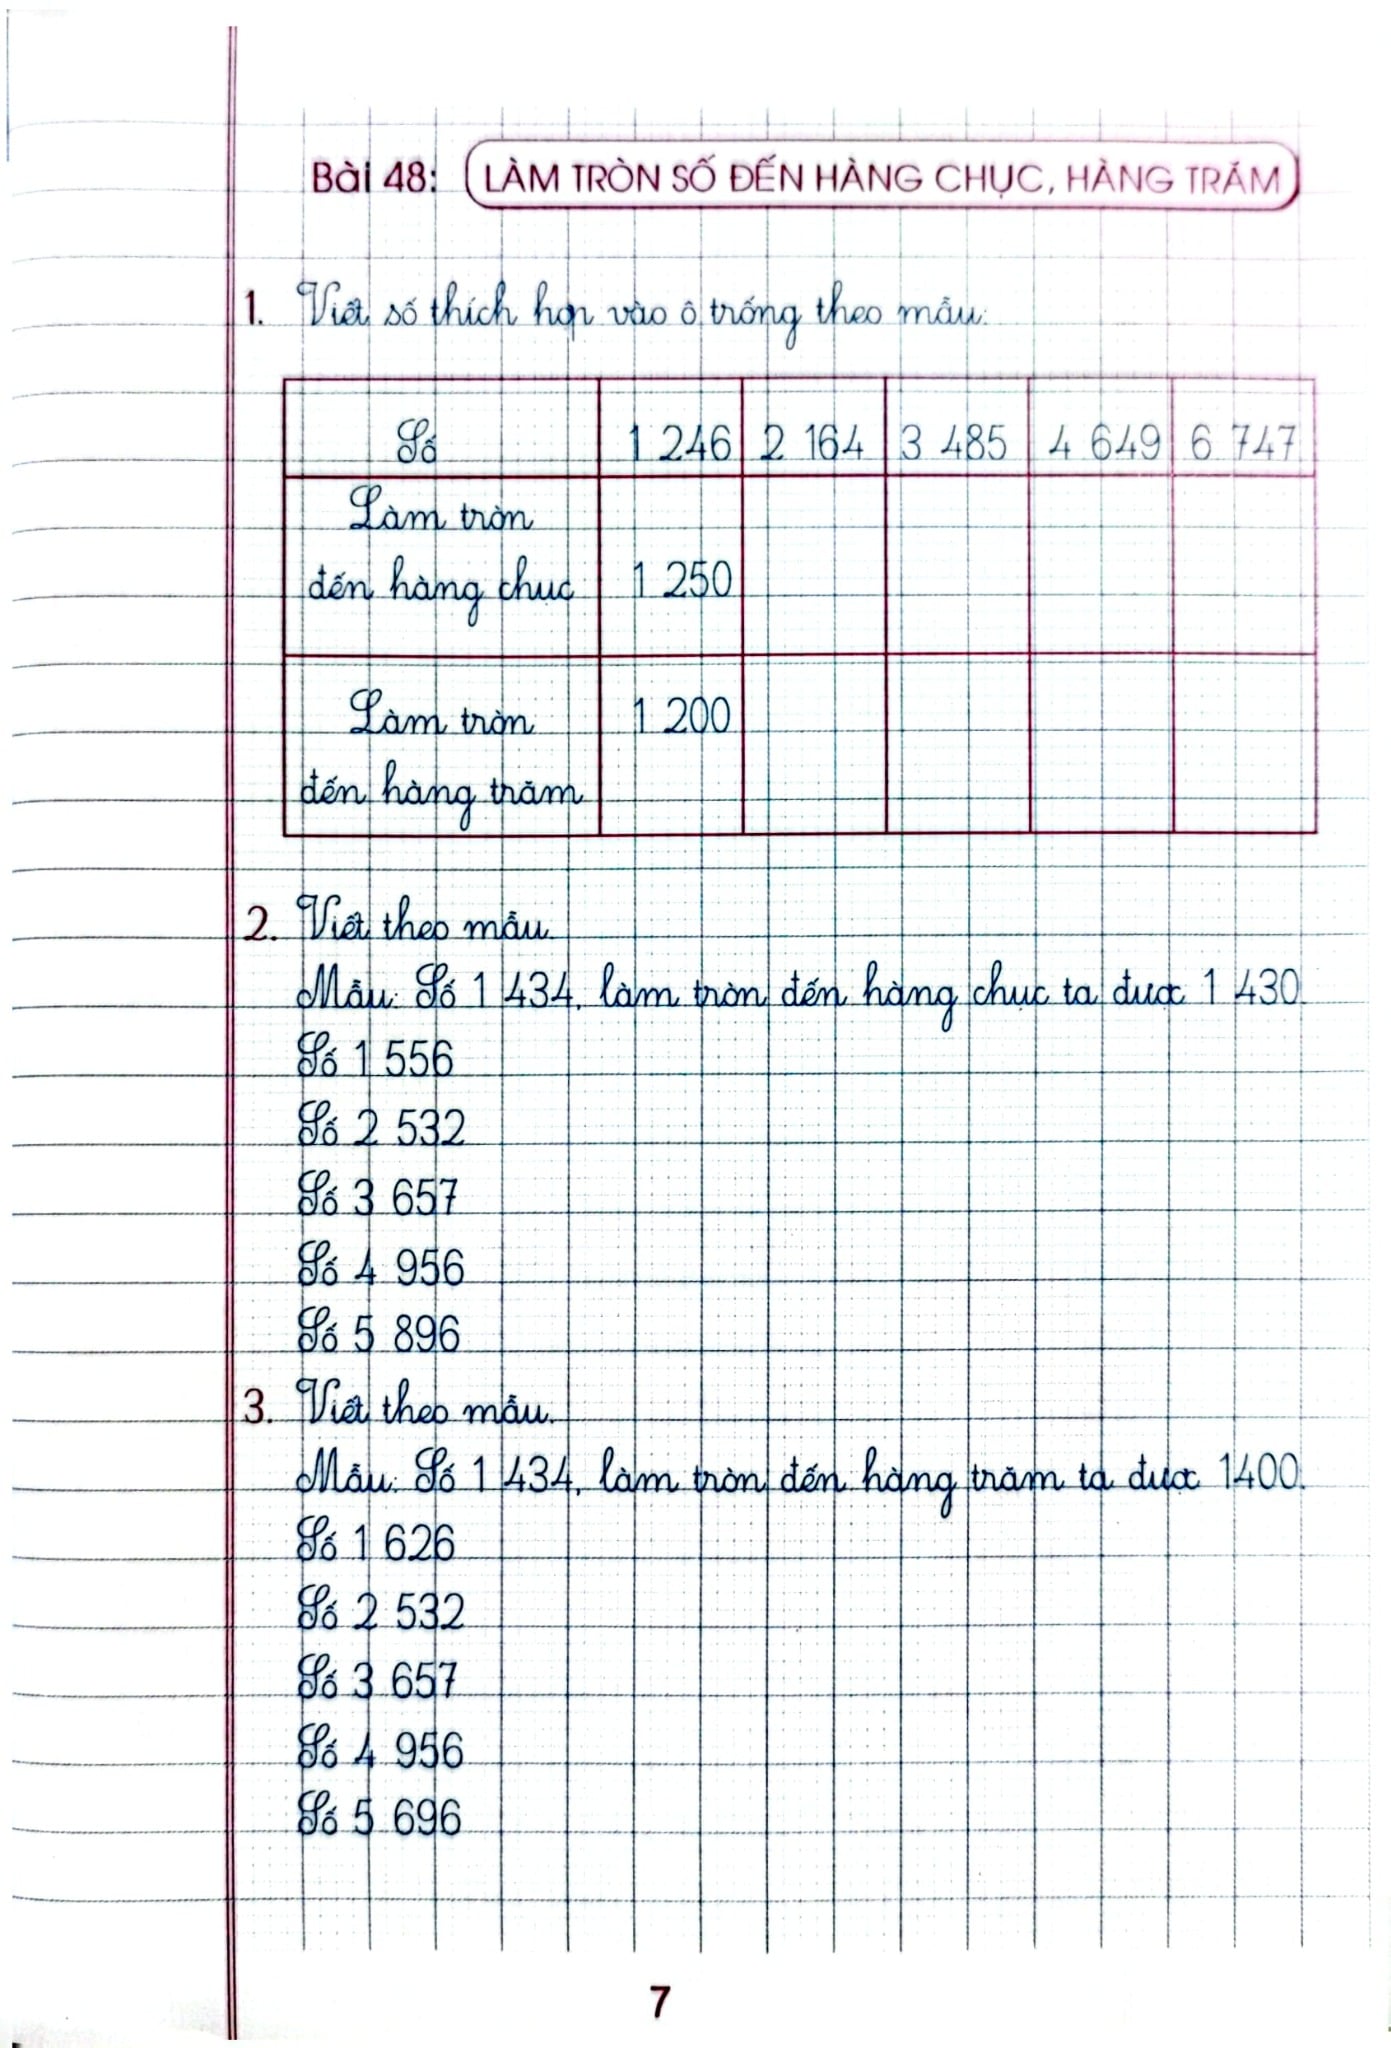 Bài 48: LÀM TRÒN SỐ ĐẾN HÀNG CHỤC, HÀNG TRĂM
1. Viết số thích hợp vào ô trống theo mẫu:
Số 1 246 2 164 3 485 4 649 6 747
Làm tròn
đến hàng chục 1 250
Làm tròn 1 200
đến hàng trăm
2. Viết theo mẫu.
Mẫu: Số 1 434, làm tròn đến hàng chục ta được 1 430.
Số 1 556
Số 2 532
Số 3 657
Số 4 956
Số 5 896
3. Viết theo mẫu.
Mẫu: Số 1 434, làm tròn đến hàng trăm ta được 1400.
Số 1 626
Số 2 532
Số 3 657
Số 4 956
Số 5 696
7